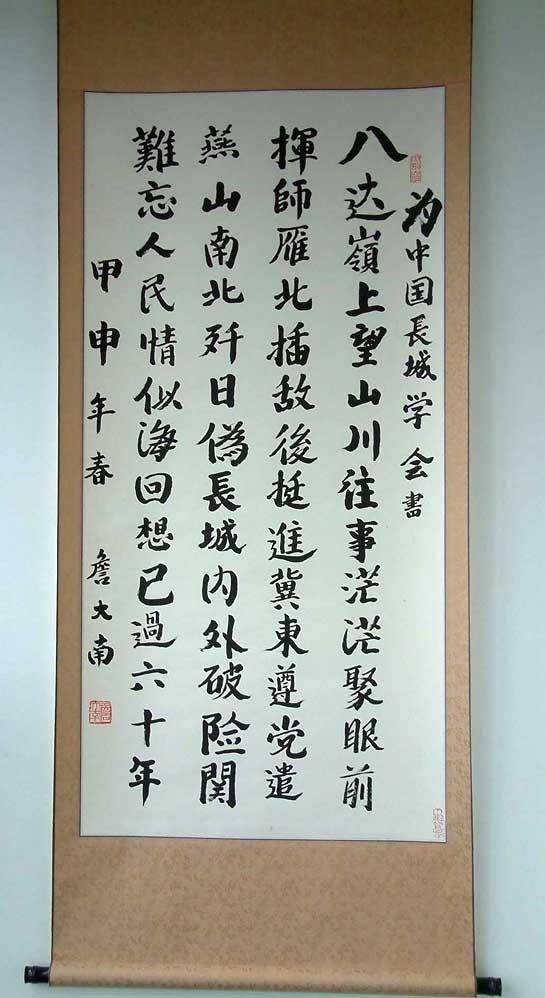 为中国長城学会書
八达嶺上望山川往事茫茫聚眼前
揮師雁北插敌後挺進冀東遵党遣
燕山南北歼日偽長城内外破险関
難忘人民情似海回想已過六十年
甲申年春 詹大南